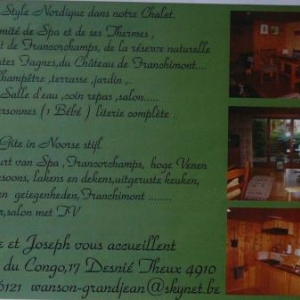 Style Nordique dans notre Chalet.
mité de Spa et de ses Thermes,
t de Francorchamps, de la réserve naturelle
tes Fagnes, du Château de Franchimont....
hampêtre, terrasse, jardin,.
Salle d'eau, coin repas, salon.....
ersonnes (1 Bébé) literie complète.
Gîte in Noorse stijl
urt van Spa, Francorchamps, hoge Venen
soons, lakens en dekens, uitgeruste keuken,
en geiegenheden, Franchimont ........
r, salon met TV
e et Joseph vous accueillent
du Congo, 17 Desnié Theux 4910
6121 wanson-grandjean@skynet.be